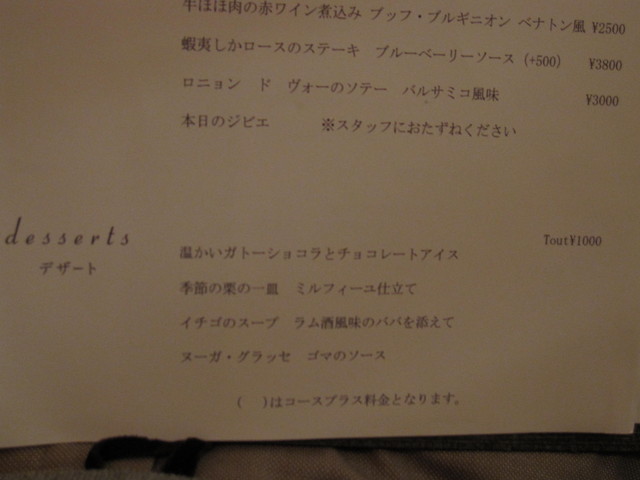 牛ほほ肉の赤ワイン煮込み ブッフ・ブルギニオン ベナトン風 ¥2500
蝦夷しかロースのステーキ ブルーベリーソース (+500) ¥3800
ロニョン ド ヴォーのソテー バルサミコ風味 ¥3000
本日のジビエ ※スタッフにおたずねください
desserts Tout¥1000
デザート
温かいガトーショコラとチョコレートアイス
季節の栗の一皿 ミルフィーユ仕立て
イチゴのスープ ラム酒風味のババを添えて
ヌーガ・グラッセ ゴマのソース
( )はコースプラス料金となります。